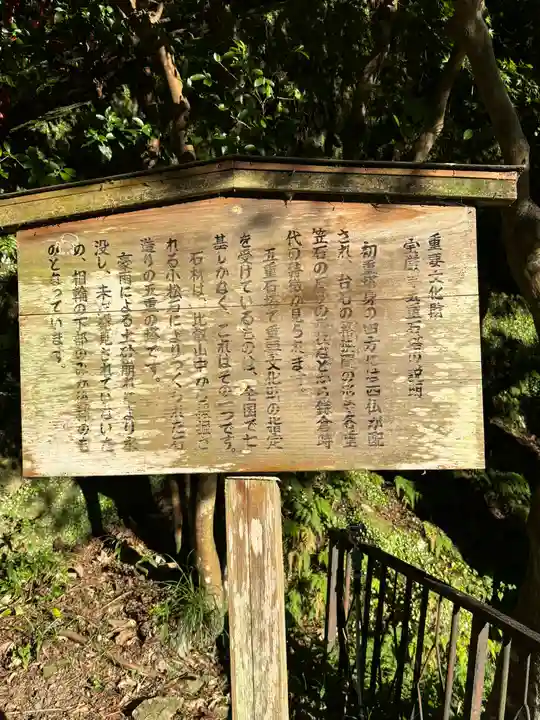 重要文化財
五重石塔の説明
初重塔身の四方には四仏が配
され、台石の格狭間の形や各重
笠石の反りの
などから鎌倉時
代の特徴が見られます。
五重石塔で重要文化財の指定
を受けているものは、全国で七
基しかなく、これはその一つです。
石材は、比叡山中から採掘さ
れる小松石によりつくられた石
造りの五重の塔です。
豪雨による土砂崩れにより水
没し、未だ発見されていないた
め、相輪の下部のみが
のとなっています。